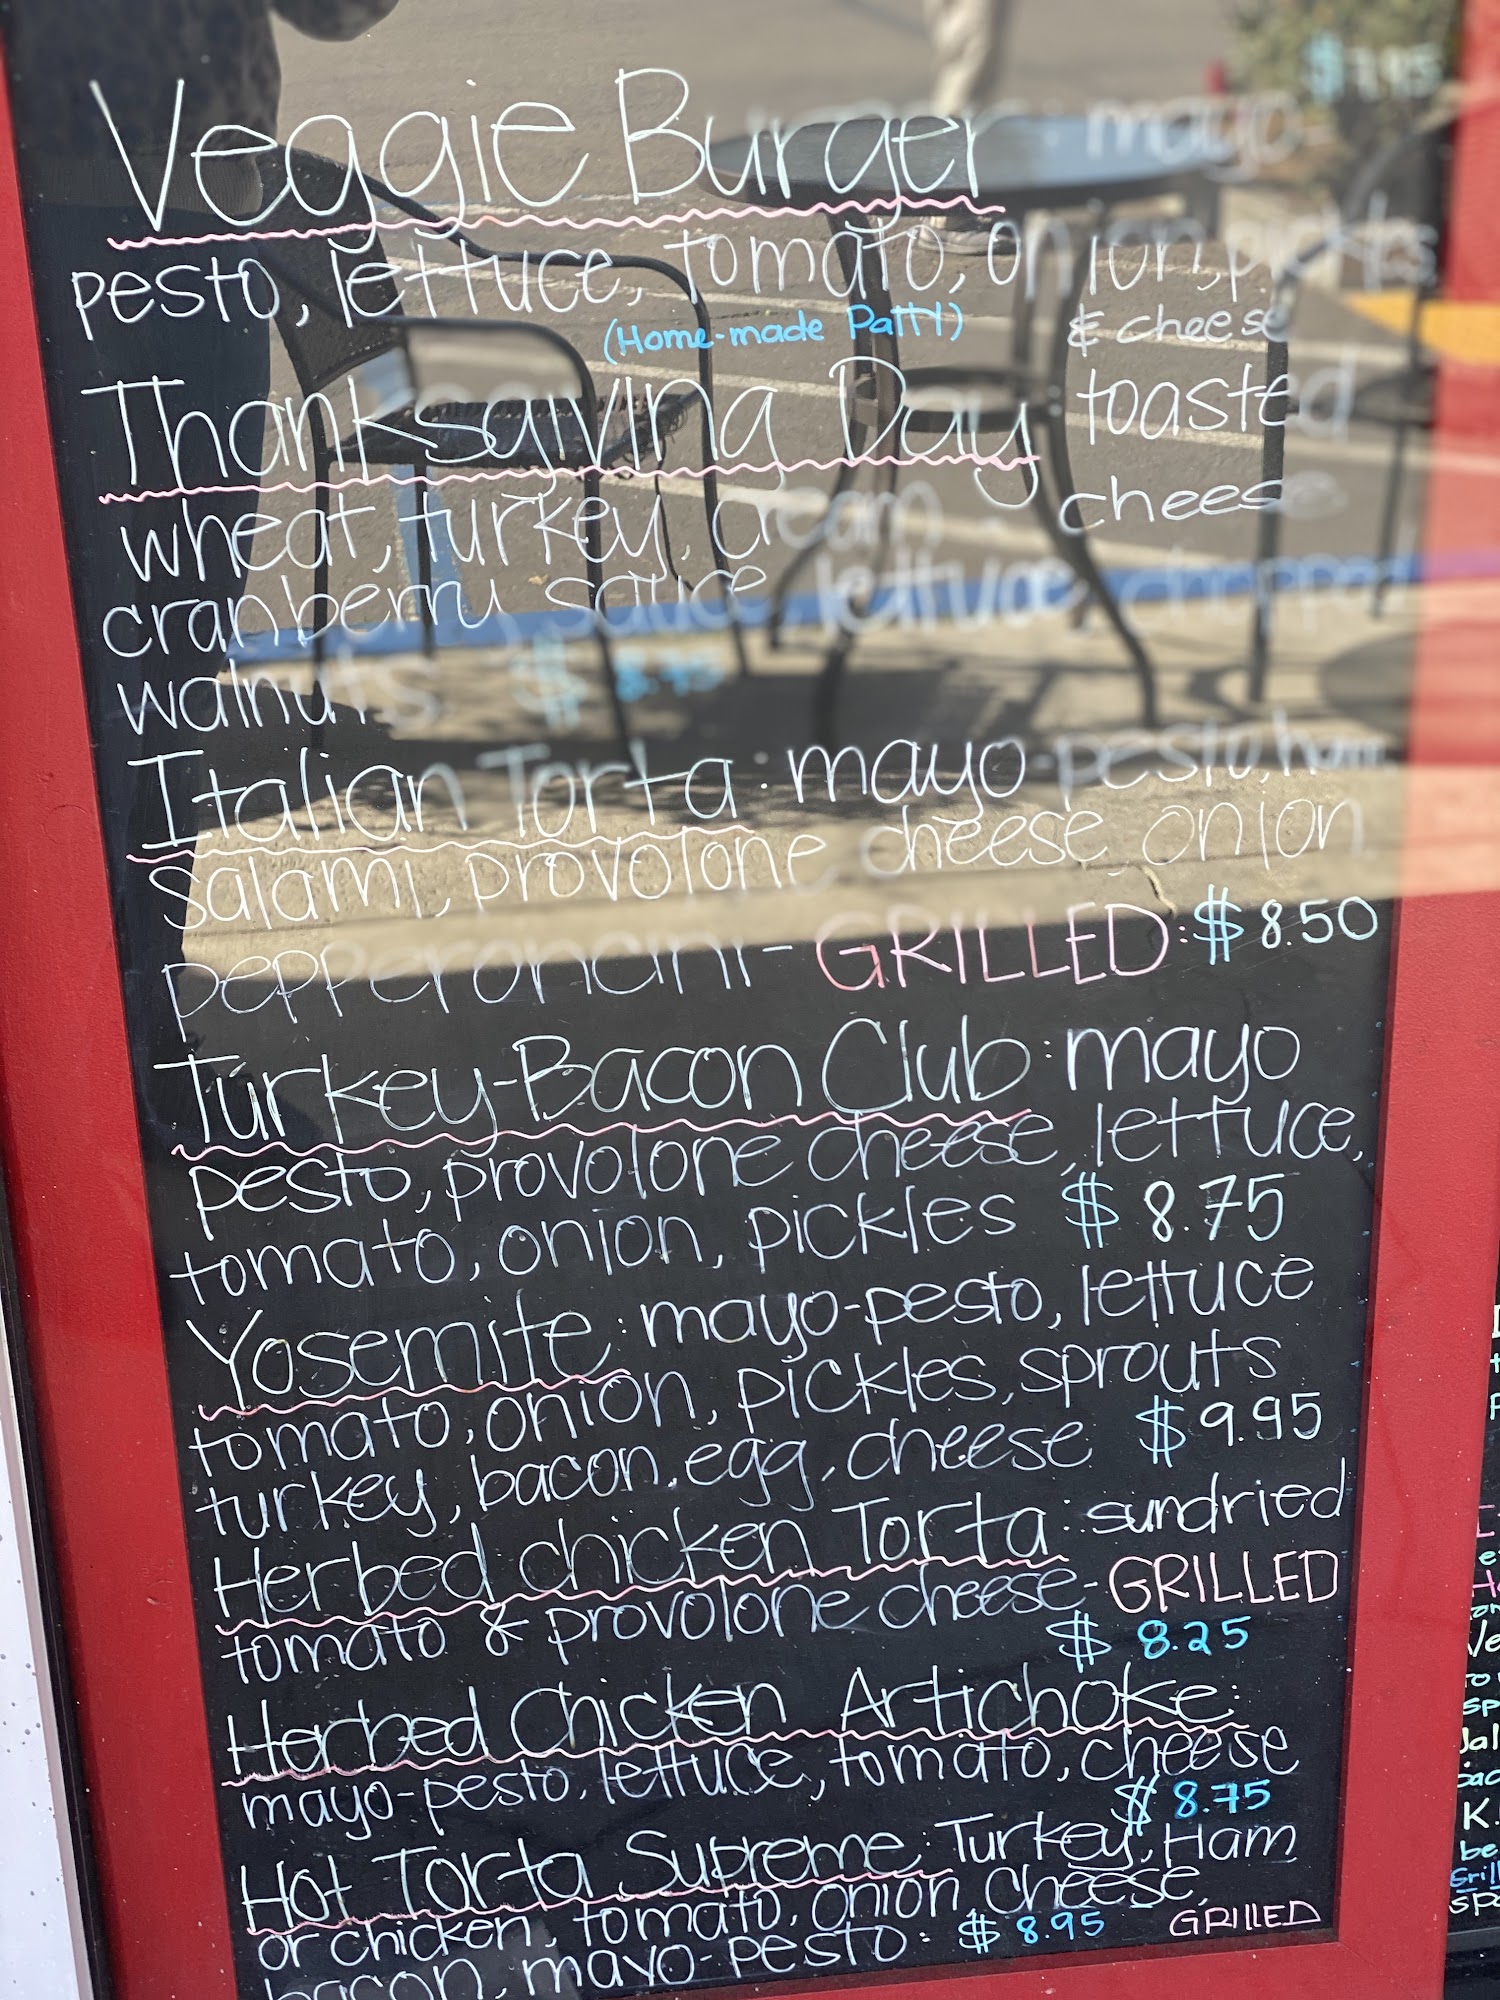 Veggie Burger : mayo-
pesto, lettuce, tomato, onion, pickles
(Home-made Patty) & cheese
Thanksgiving Day toasted
wheat, turkey, cream cheese
cranberry sauce, lettuce, chopped
walnuts
Italian Torta : mayo-pesto, ham
salami, provolone cheese, onion
pepperoncini - GRILLED : $ 8.50
Turkey-Bacon Club : mayo
pesto, provolone cheese, lettuce,
tomato, onion, pickles $ 8.75
Yosemite : mayo-pesto, lettuce
tomato, onion, pickles, sprouts
turkey, bacon, egg, cheese $ 9.95
Herbed chicken Torta : sundried
tomato & provolone cheese - GRILLED
$ 8.25
Herbed Chicken Artichoke :
mayo-pesto, lettuce, tomato, cheese
$ 8.75
Hot Torta Supreme : Turkey, Ham
or chicken, tomato, onion, cheese,
bacon, mayo-pesto : $ 8.95 GRILLED